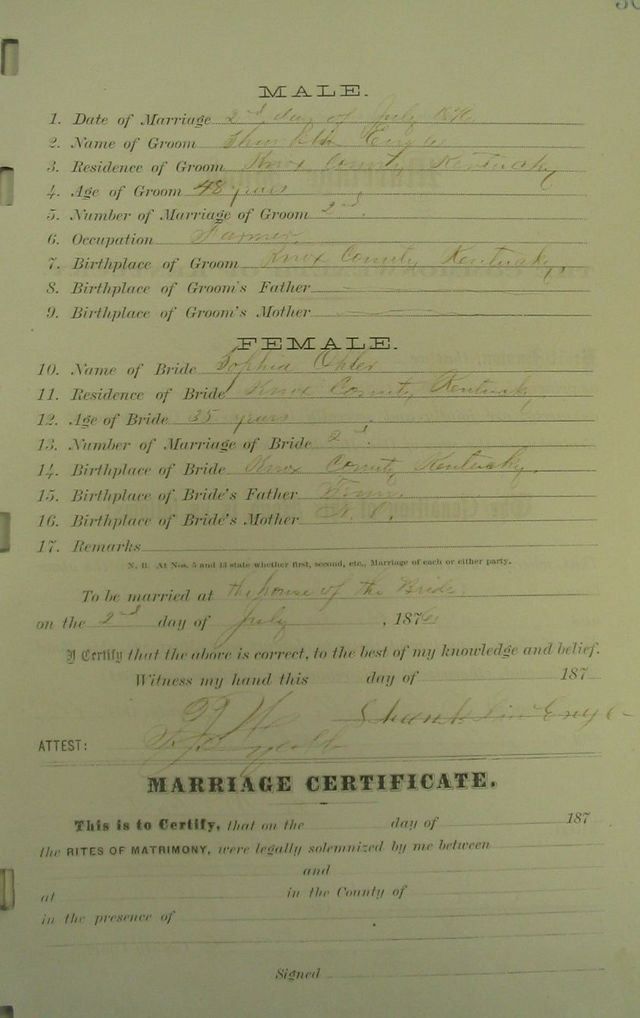 MALE.
1. Date of Marriage 2nd day of July 1876
2. Name of Groom
3. Residence of Groom Knox County Kentucky
4. Age of Groom 48 years
5. Number of Marriage of Groom 2nd.
6. Occupation Farmer
7. Birthplace of Groom Knox County Kentucky,
8. Birthplace of Groom's Father
9. Birthplace of Groom's Mother
FEMALE.
10. Name of Bride Sophia
11. Residence of Bride Knox County Kentucky
12. Age of Bride 35 years
13. Number of Marriage of Bride 2nd.
14. Birthplace of Bride Knox County Kentucky.
15. Birthplace of Bride's Father Tenn.
16. Birthplace of Bride's Mother
17. Remarks
N. B. At Nos. 5 and 13 state whether first, second, etc., Marriage of each or either party.
To be married at the house of the Bride
on the 2nd day of July , 1876
I Certify that the above is correct, to the best of my knowledge and belief.
Witness my hand this day of 187
ATTEST:
MARRIAGE CERTIFICATE.
This is to Certify, that on the day of 187
the RITES OF MATRIMONY, were legally solemnized by me between
and
at in the County of
in the presence of
Signed